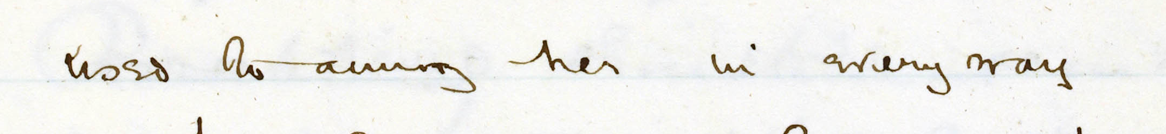 used to annoy her in every way